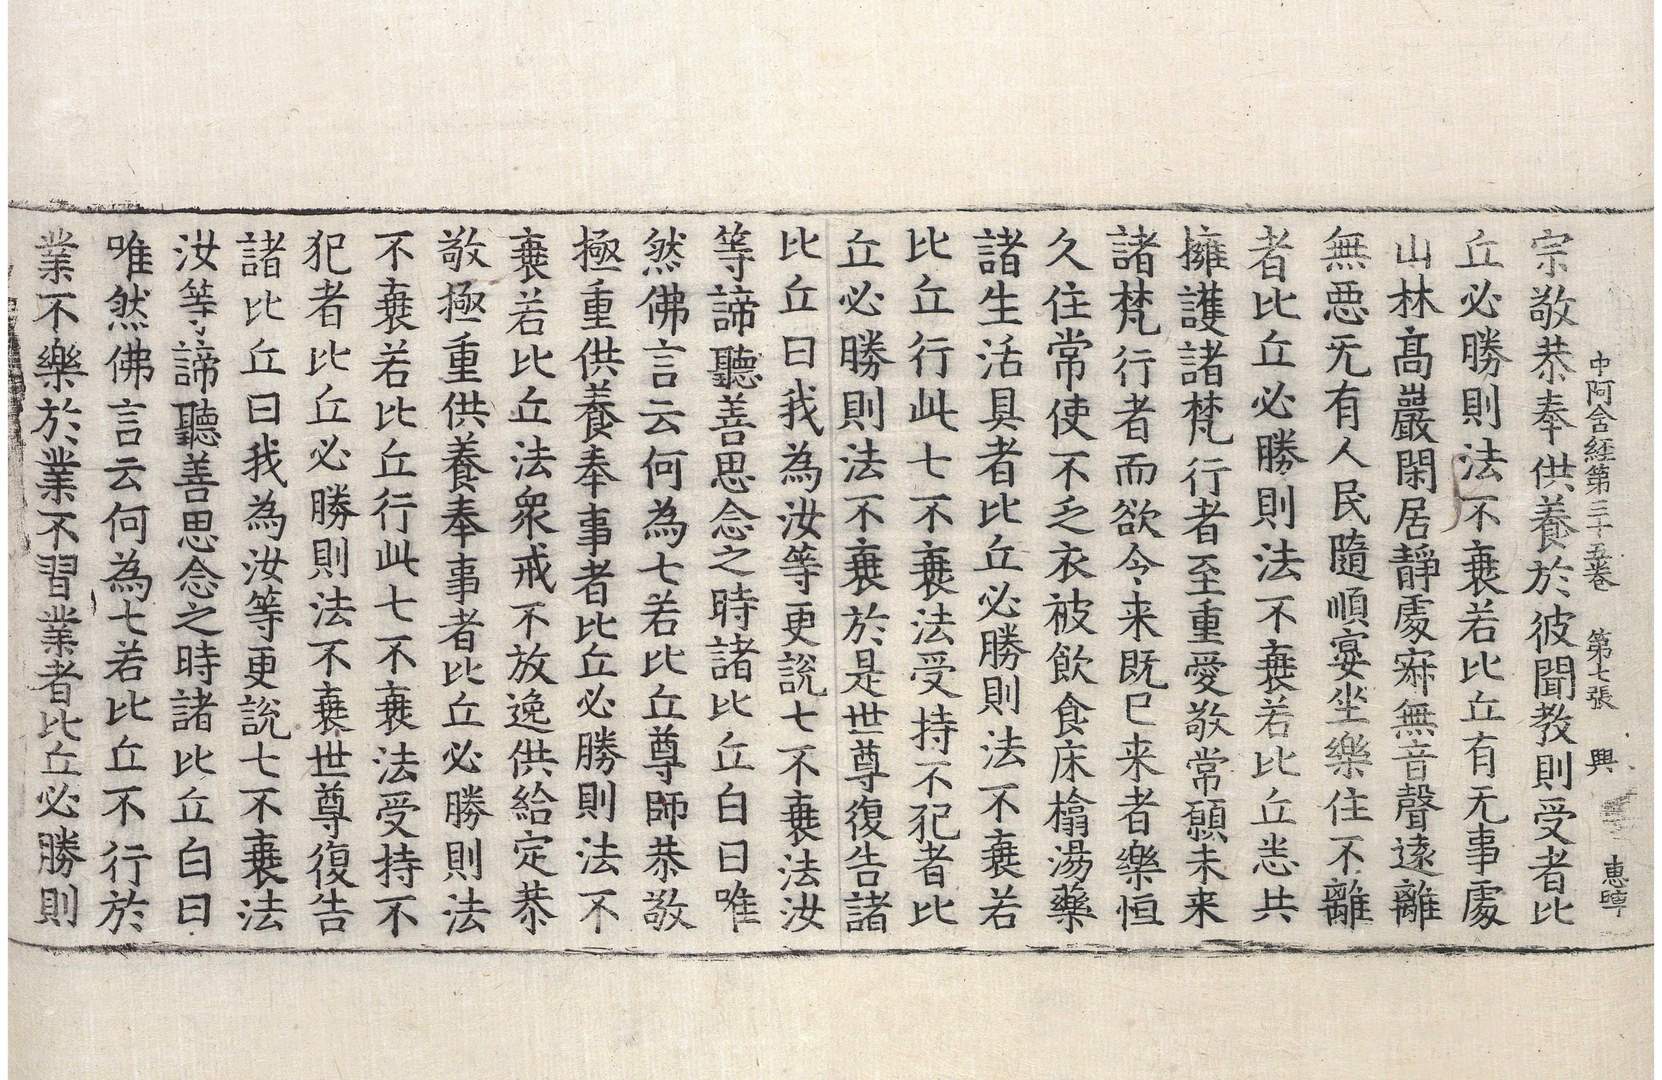 中阿含經第三十五卷 第七張 興 惠
宗敬恭奉供養於彼聞教則受者比
丘必勝則法不衰若比丘有无事處
山林高巖閑居靜處寂無音聲遠離
無惡无有人民隨順宴坐樂住不離
者比丘必勝則法不衰若比丘悉共
擁護諸梵行者至重愛敬常願未来
諸梵行者而欲令来既已来者樂恒
久住常使不乏衣被飲食床㯓湯藥
諸生活具者比丘必勝則法不衰若
比丘行此七不衰法受持不犯者比
丘必勝則法不衰於是世尊復告諸
比丘曰我為汝等更說七不衰法汝
等諦聽善思念之時諸比丘白曰唯
然佛言云何為七若比丘尊師恭敬
極重供養奉事者比丘必勝則法不
衰若比丘法衆戒不放逸供給定恭
敬極重供養奉事者比丘必勝則法
不衰若比丘行此七不衰法受持不
犯者比丘必勝則法不衰世尊復告
諸比丘曰我為汝等更說七不衰法
汝等諦聽善思念之時諸比丘白曰
唯然佛言云何為七若比丘不行於
業不樂於業不習業者比丘必勝則